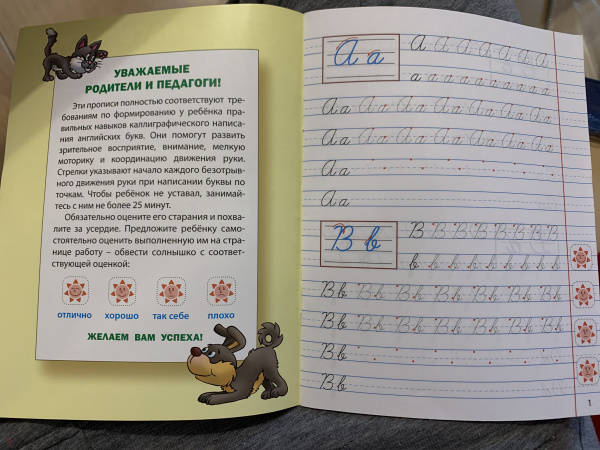 УВАЖАЕМЫЕ
РОДИТЕЛИ И ПЕДАГОГИ!
Эти прописи полностью соответствуют тре-
бованиям по формированию у ребёнка пра-
вильных навыков каллиграфического написа-
ния английских букв. Они помогут развить
зрительное восприятие, внимание, мелкую
моторику и координацию движения руки.
Стрелки указывают начало каждого безотрыв-
ного движения руки при написании буквы по
точкам. Чтобы ребёнок не уставал, занимай-
тесь с ним не более 25 минут.
Обязательно оцените его старания и похва-
лите за усердие. Предложите ребёнку само-
стоятельно оценить выполненную им на стра-
нице работу – обвести солнышко с соответ-
ствующей оценкой:
отлично хорошо так себе плохо
ЖЕЛАЕМ ВАМ УСПЕХА!
A a
A A A A A A A
a a a a a a a a a a
A a A a A a A a A a A a A a
A a A a A a A a A a A a A a
A a
A a
B b
B B B B B B B B
b b b b b b b b b
B b B b B b B b B b B b B b
B b B b B b B b B b B b B b
B b
B b
1